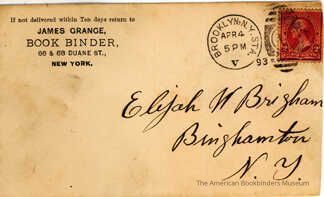 If not delivered within Ten days return to
JAMES GRANGE,
BOOK BINDER,
66 & 68 DUANE ST.,
NEW YORK.
BROOKLYN, N.Y. STA.
APR 4
5 PM
93
V
2
Elijah W Brigham
Binghamton
N. Y.
The American Bookbinders Museum